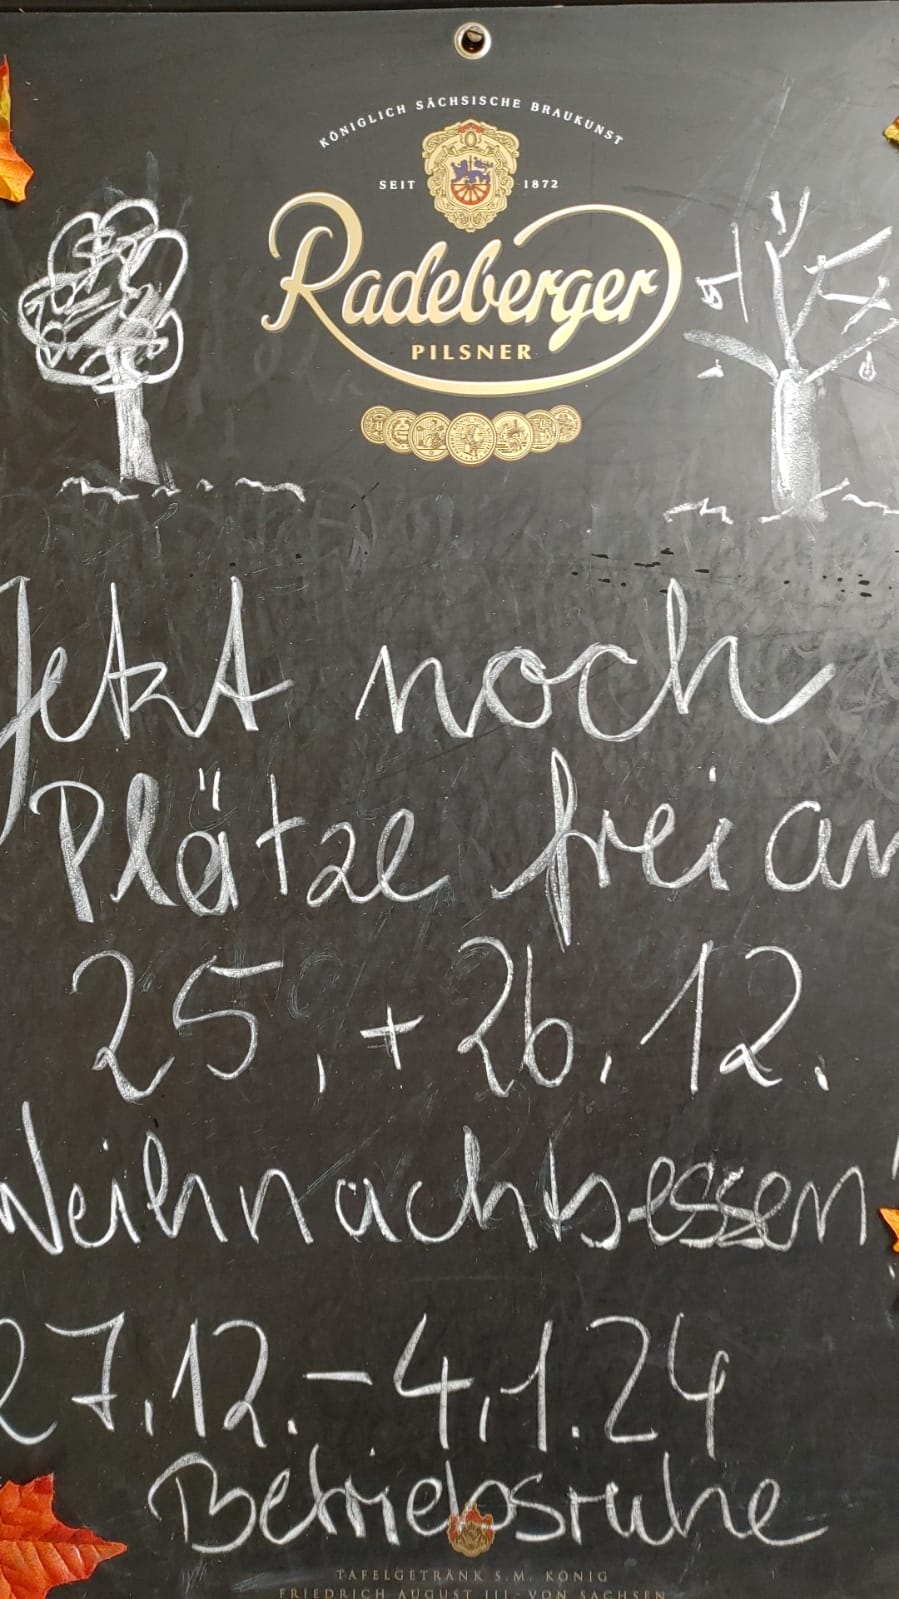 KÖNIGLICH SÄCHSISCHE BRAUKUNST
SEIT 1872
Radeberger
PILSNER
Jetzt noch
Plätze frei an
25. + 26. 12.
Weihnachtsessen!
27.12. – 4.1.24
Betriebsruhe
TAFELGETRÄNK S.M. KÖNIG
FRIEDRICH AUGUST III. VON SACHSEN